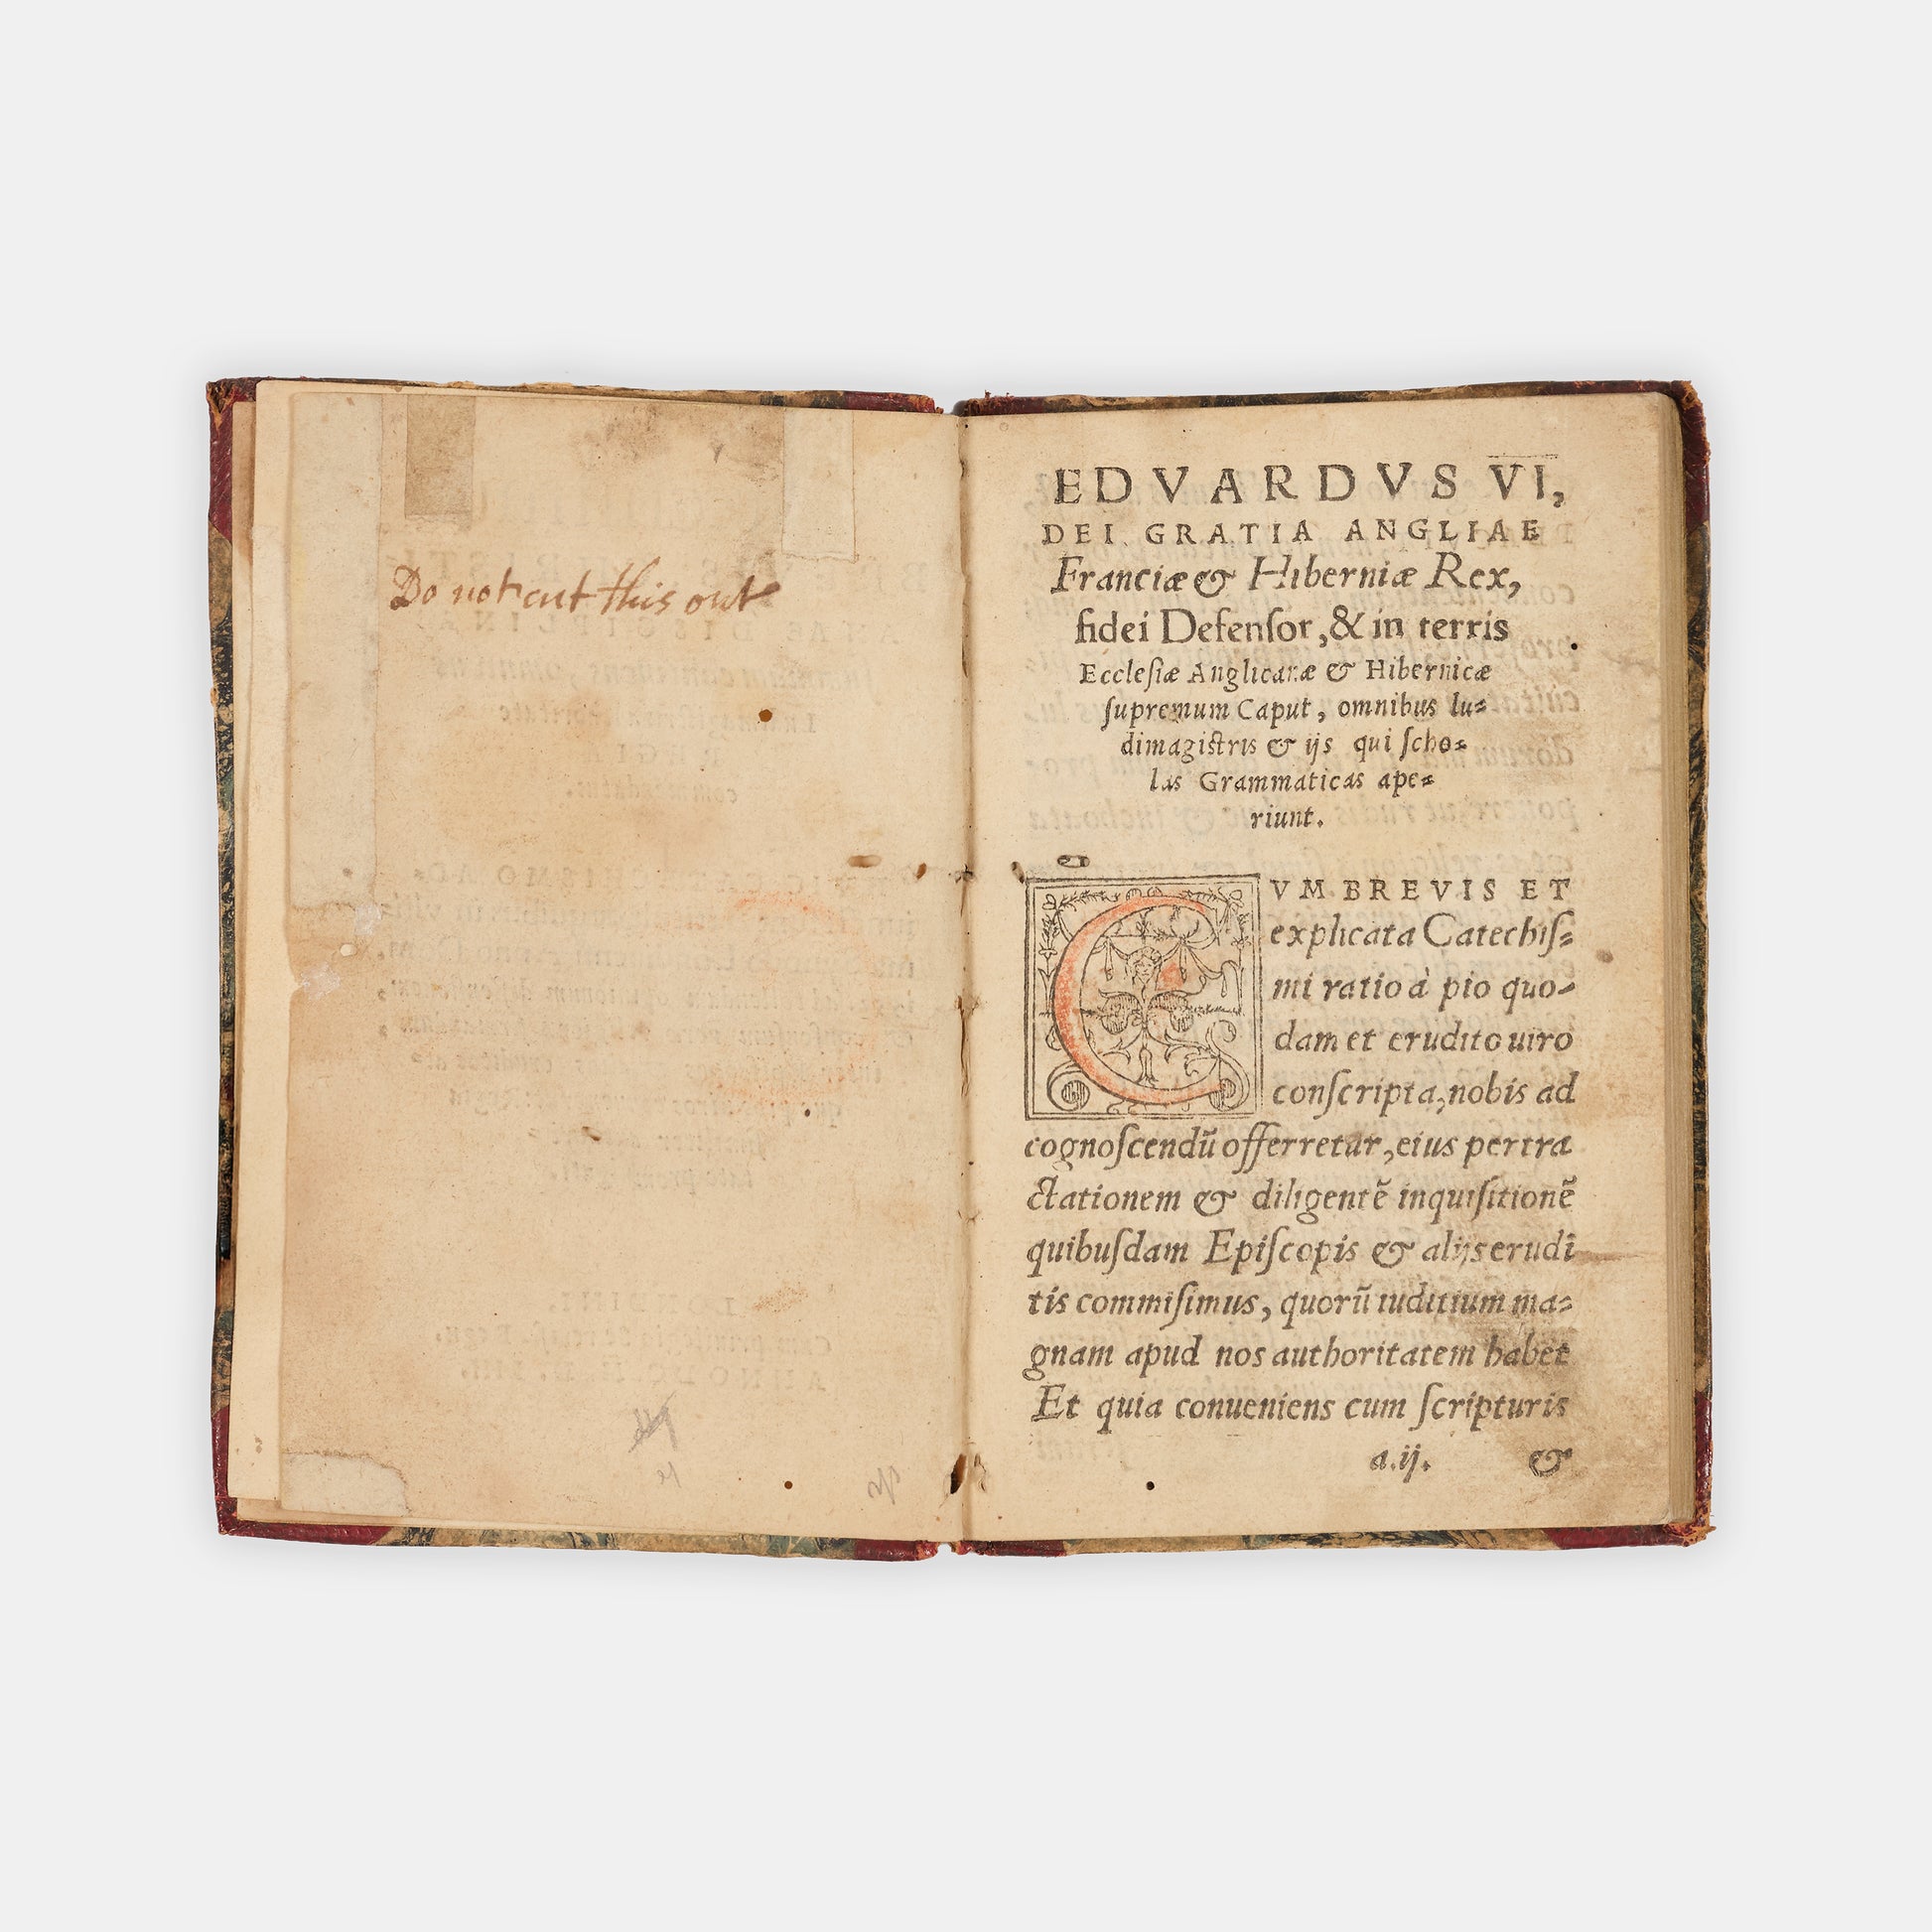 Do not cut this out
EDVARDVS VI,
DEI GRATIA ANGLIAE
Franciæ & Hiberniæ Rex,
fidei Defenſor, & in terris
Eccleſiæ Anglicanæ & Hibernicæ
ſupremum Caput, omnibus lu⸗
dimagiſtris & ijs qui ſcho⸗
las Grammaticas ape⸗
riunt.
CVM BREVIS ET
explicata Catechiſ⸗
mi ratio à pio quo⸗
dam et erudito uiro
conſcripta, nobis ad
cognoſcendū offerretur, eius pertra
ctationem & diligentē inquiſitionē
quibuſdam Epiſcopis & alijs erudi
tis commiſimus, quorū iuditium ma⸗
gnam apud nos authoritatem habet
Et quia conueniens cum ſcripturis
a.ij. &